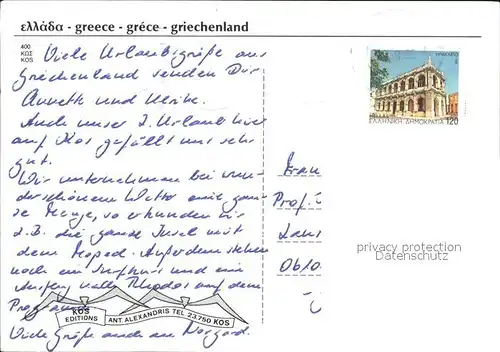 ελλάδα - greece - gréce - griechenland
400
ΚΩΣ
KOS
Viele Urlaubsgrüße aus
Griechenland senden Dir
Annett und Ulrike.
Auch unser 2. Urlaub hier
auf Kos gefällt uns sehr
gut.
Wir unternehmen bei wun-
derschönem Wetter eine gan-
ze Menge, so erkunden wir
z.B. die ganze Insel mit
dem Moped. Außerdem stehen
noch ein Surfkurs und ein
Ausflug nach Rhodos auf dem
Programm.
Viele Grüße auch an
ΕΛΛΗΝΙΚΗ ΔΗΜΟΚΡΑΤΙΑ 120
Frau
Prof.
privacy protection
Datenschutz
KOS
EDITIONS
ANT. ALEXANDRIS TEL 23.750 KOS